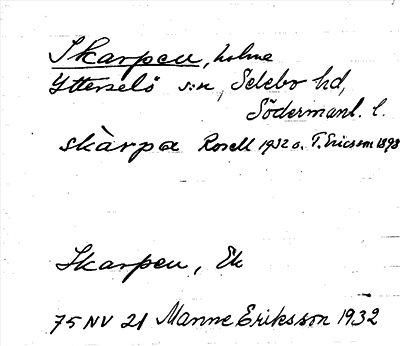 Skarpen, holme
Ytterselö s:n, Selebo hd,
Södermanl. l.
skàrpa Rosell 1932 o. T. Ericson 1898
Skarpen, Ek
75 NV 21 Manne Eriksson 1932